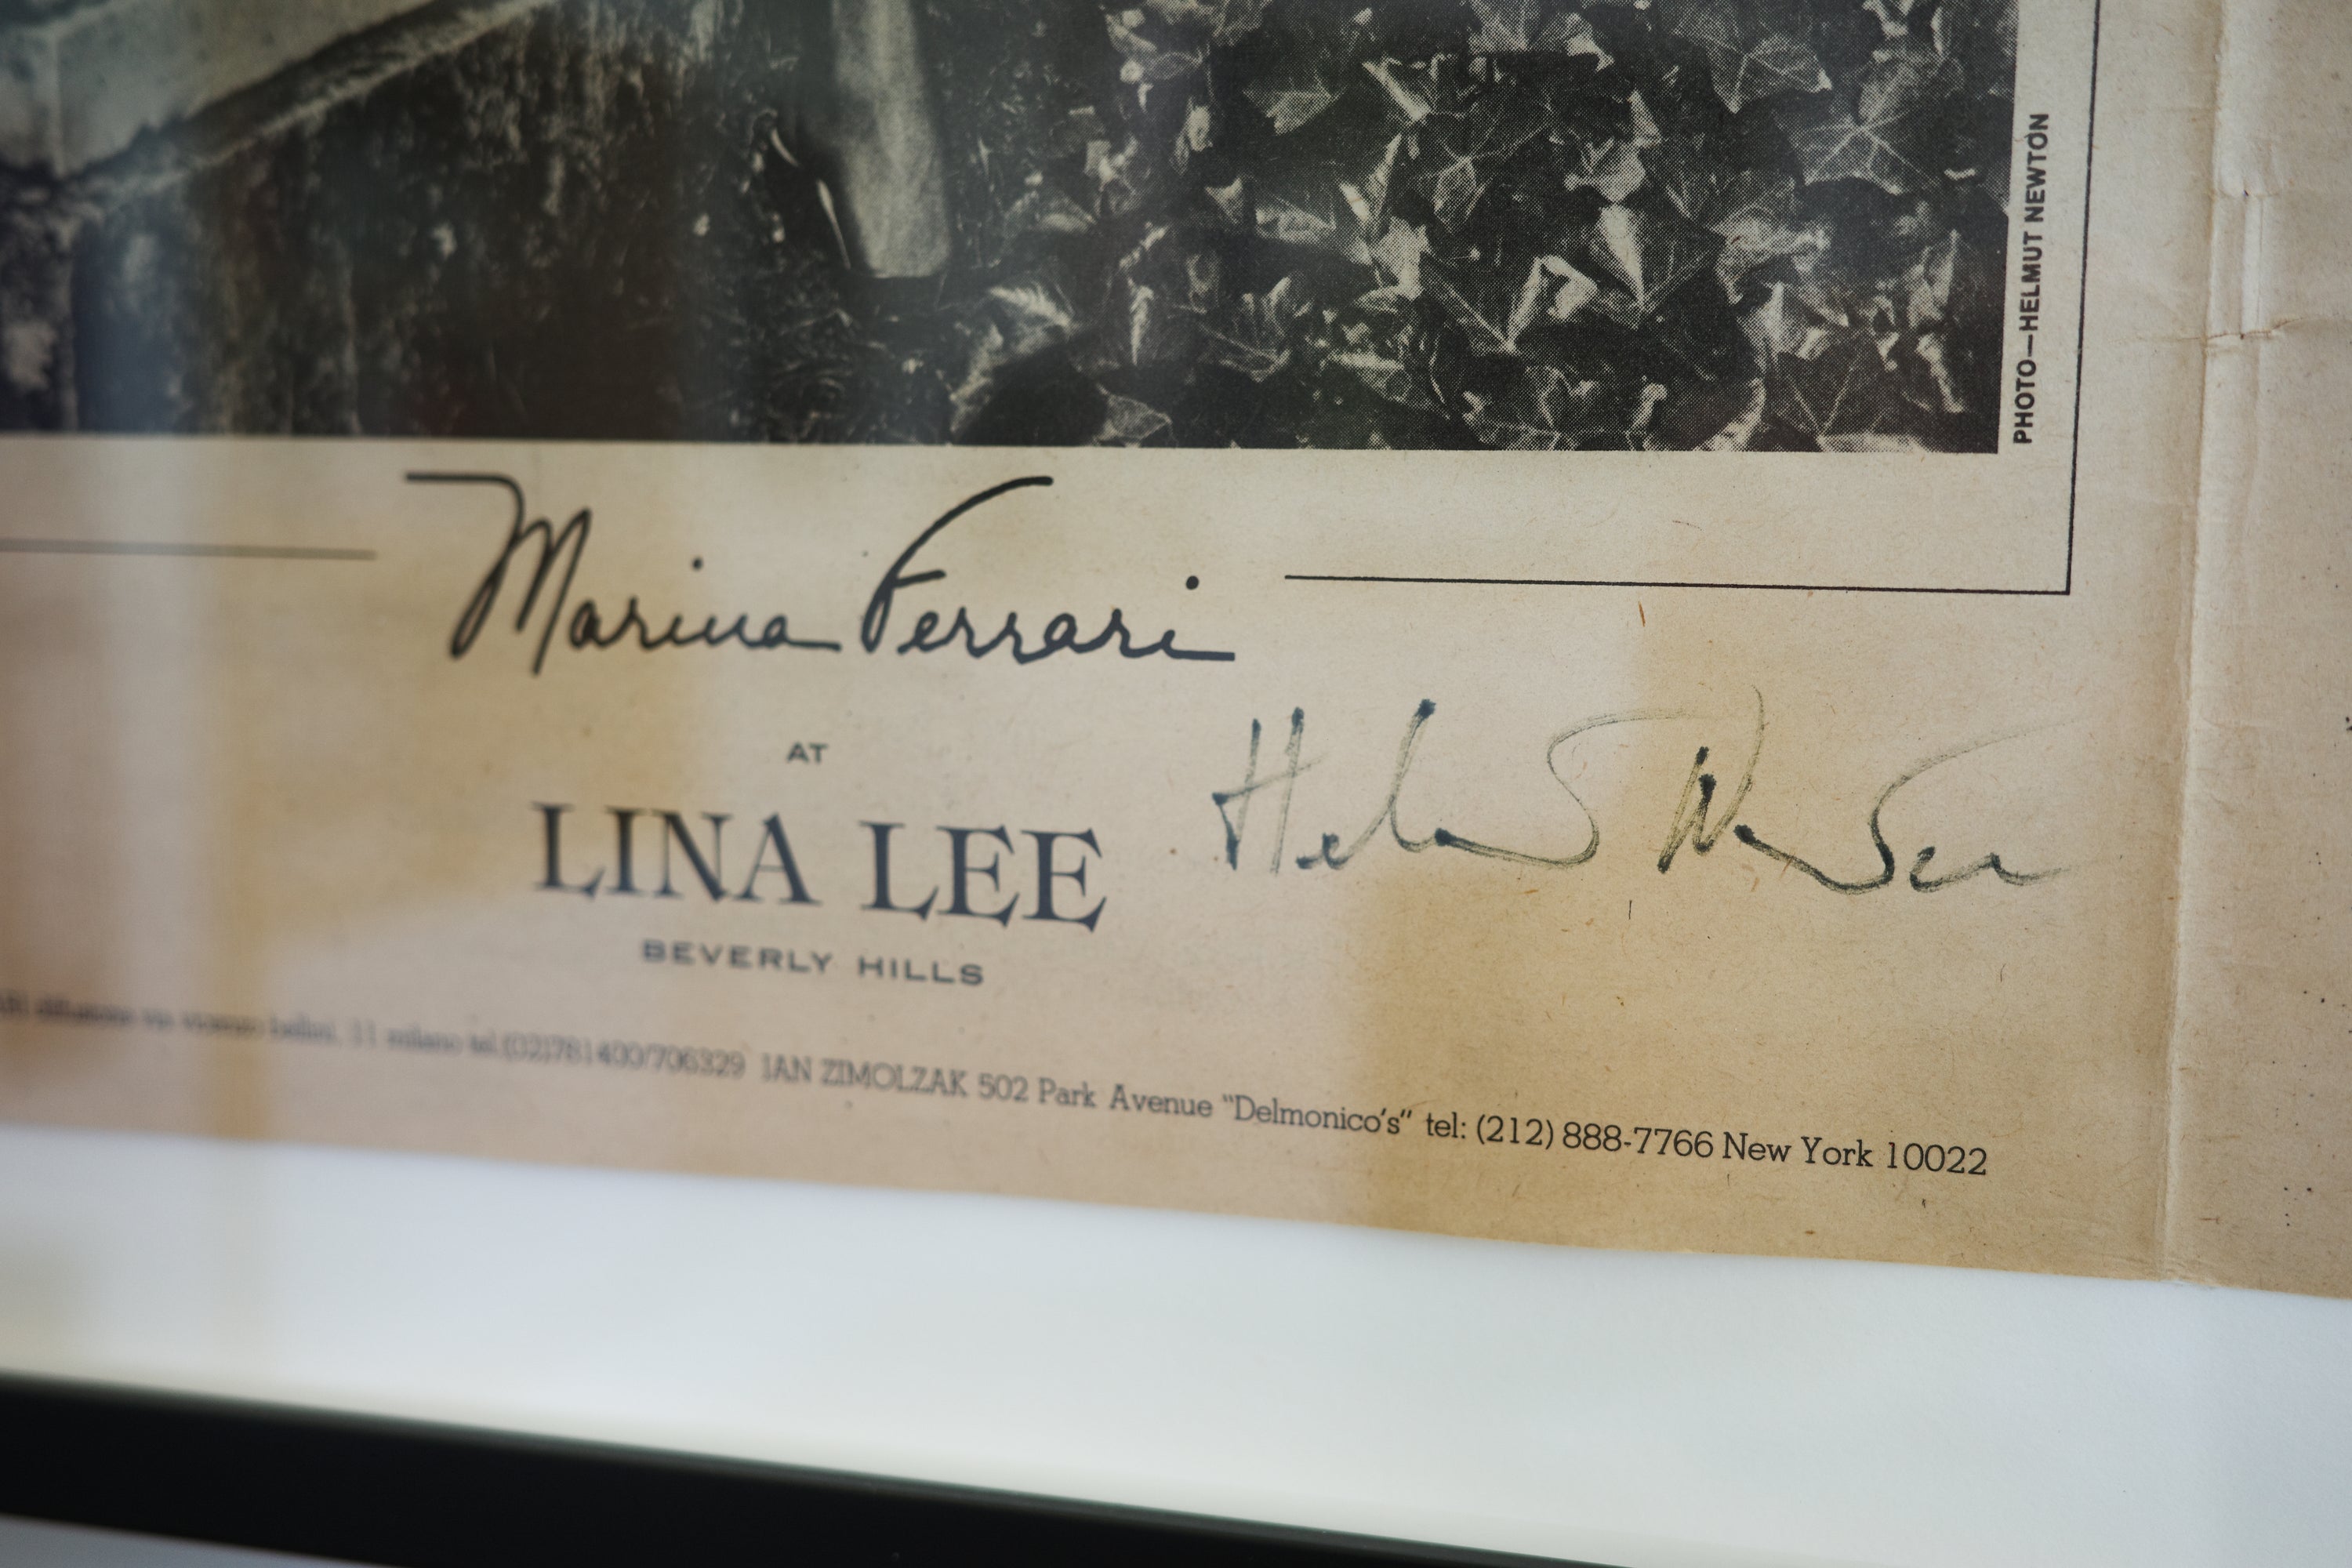 PHOTO—HELMUT NEWTON
Marina Ferrari
AT
LINA LEE
Helmut Newton
BEVERLY HILLS
diffusione via vicenzo bellini, 11 milano tel.(02)781400/706329 IAN ZIMOLZAK 502 Park Avenue "Delmonico's" tel: (212) 888-7766 New York 10022